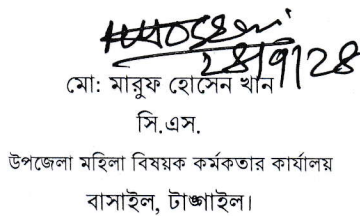 ২৪/৭/২৪
মো: মারুফ হোসেন খান
সি.এস.
উপজেলা মহিলা বিষয়ক কর্মকতার কার্যালয়
বাসাইল, টাঙ্গাইল।